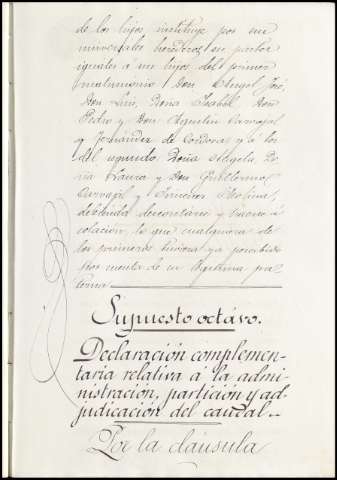 de los hijos, instituye por sus
universales herederos en partes
iguales á sus hijos del primer
matrimonio Don Angel José,
Don Luis, Doña Isabel, Don
Pedro y Don Agustin Carvajal
y Fernández de Córdoba y á los
del segundo Doña Angela, Do-
ña Laura y Don Guillermo
Carvajal y
debiendo descontarse y traerse á
colación, lo que cualquiera de
los primeros tuviera ya percibido
por cuenta de su legítima pa-
terna.
Supuesto octávo.
Declaración complemen-
taria relativa á la admi-
nistración, partición y ad-
judicación del caudal.
Por la cláusula